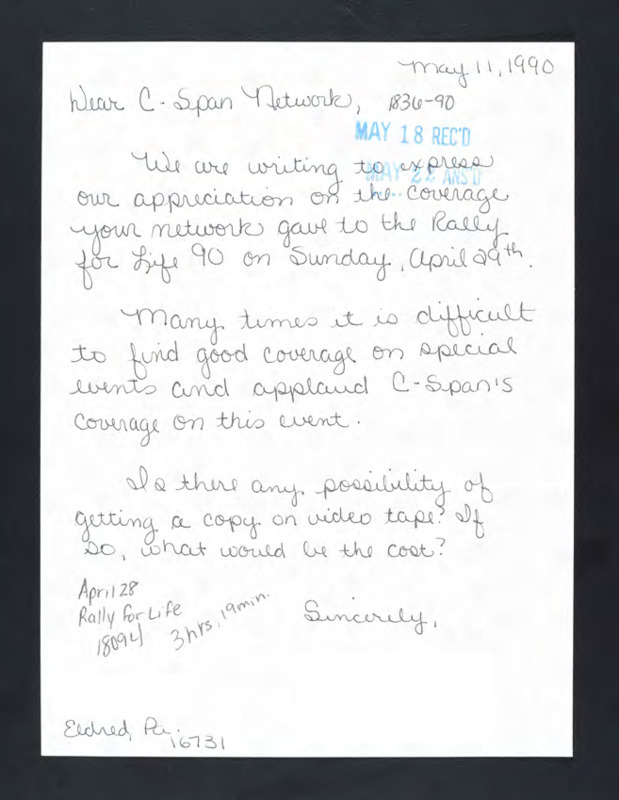 May 11, 1990
Dear C-Span Network, 1836-90
MAY 18 REC'D
We are writing to express
MAY 22 ANS'D
our appreciation on the coverage
your network gave to the Rally
for Life 90 on Sunday, April 29th.
Many times it is difficult
to find good coverage on special
events and applaud C-Span's
coverage on this event.
Is there any possibility of
getting a copy on video tape? If
so, what would be the cost?
April 28
Rally for Life
18094
3 hrs, 19 min.
Sincerely,
Eldred, Pa.
16731